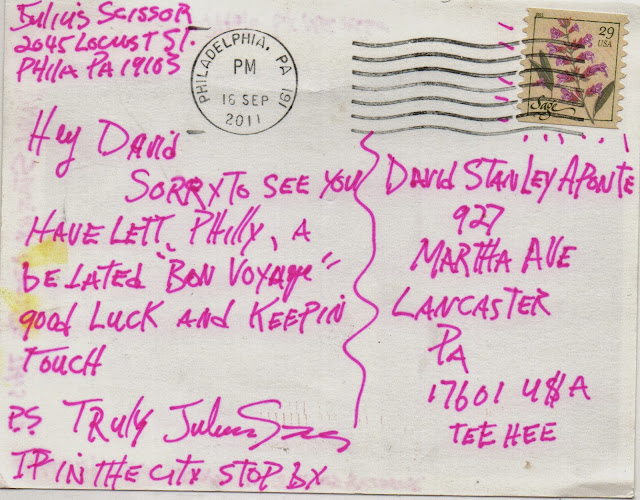 Julius Scissor
2045 Locust St.
Phila PA 19103
PHILADELPHIA, PA 191
PM
16 SEP
2011
29
USA
Sage
Hey David
Sorry to see you
have left Philly, a
belated "Bon Voyage"
good luck and keep in
touch
Truly Julius
P.S.
IF in the city stop by
David Stanley Aponte
927
Martha Ave
Lancaster
Pa
17601 U$A
TEE HEE